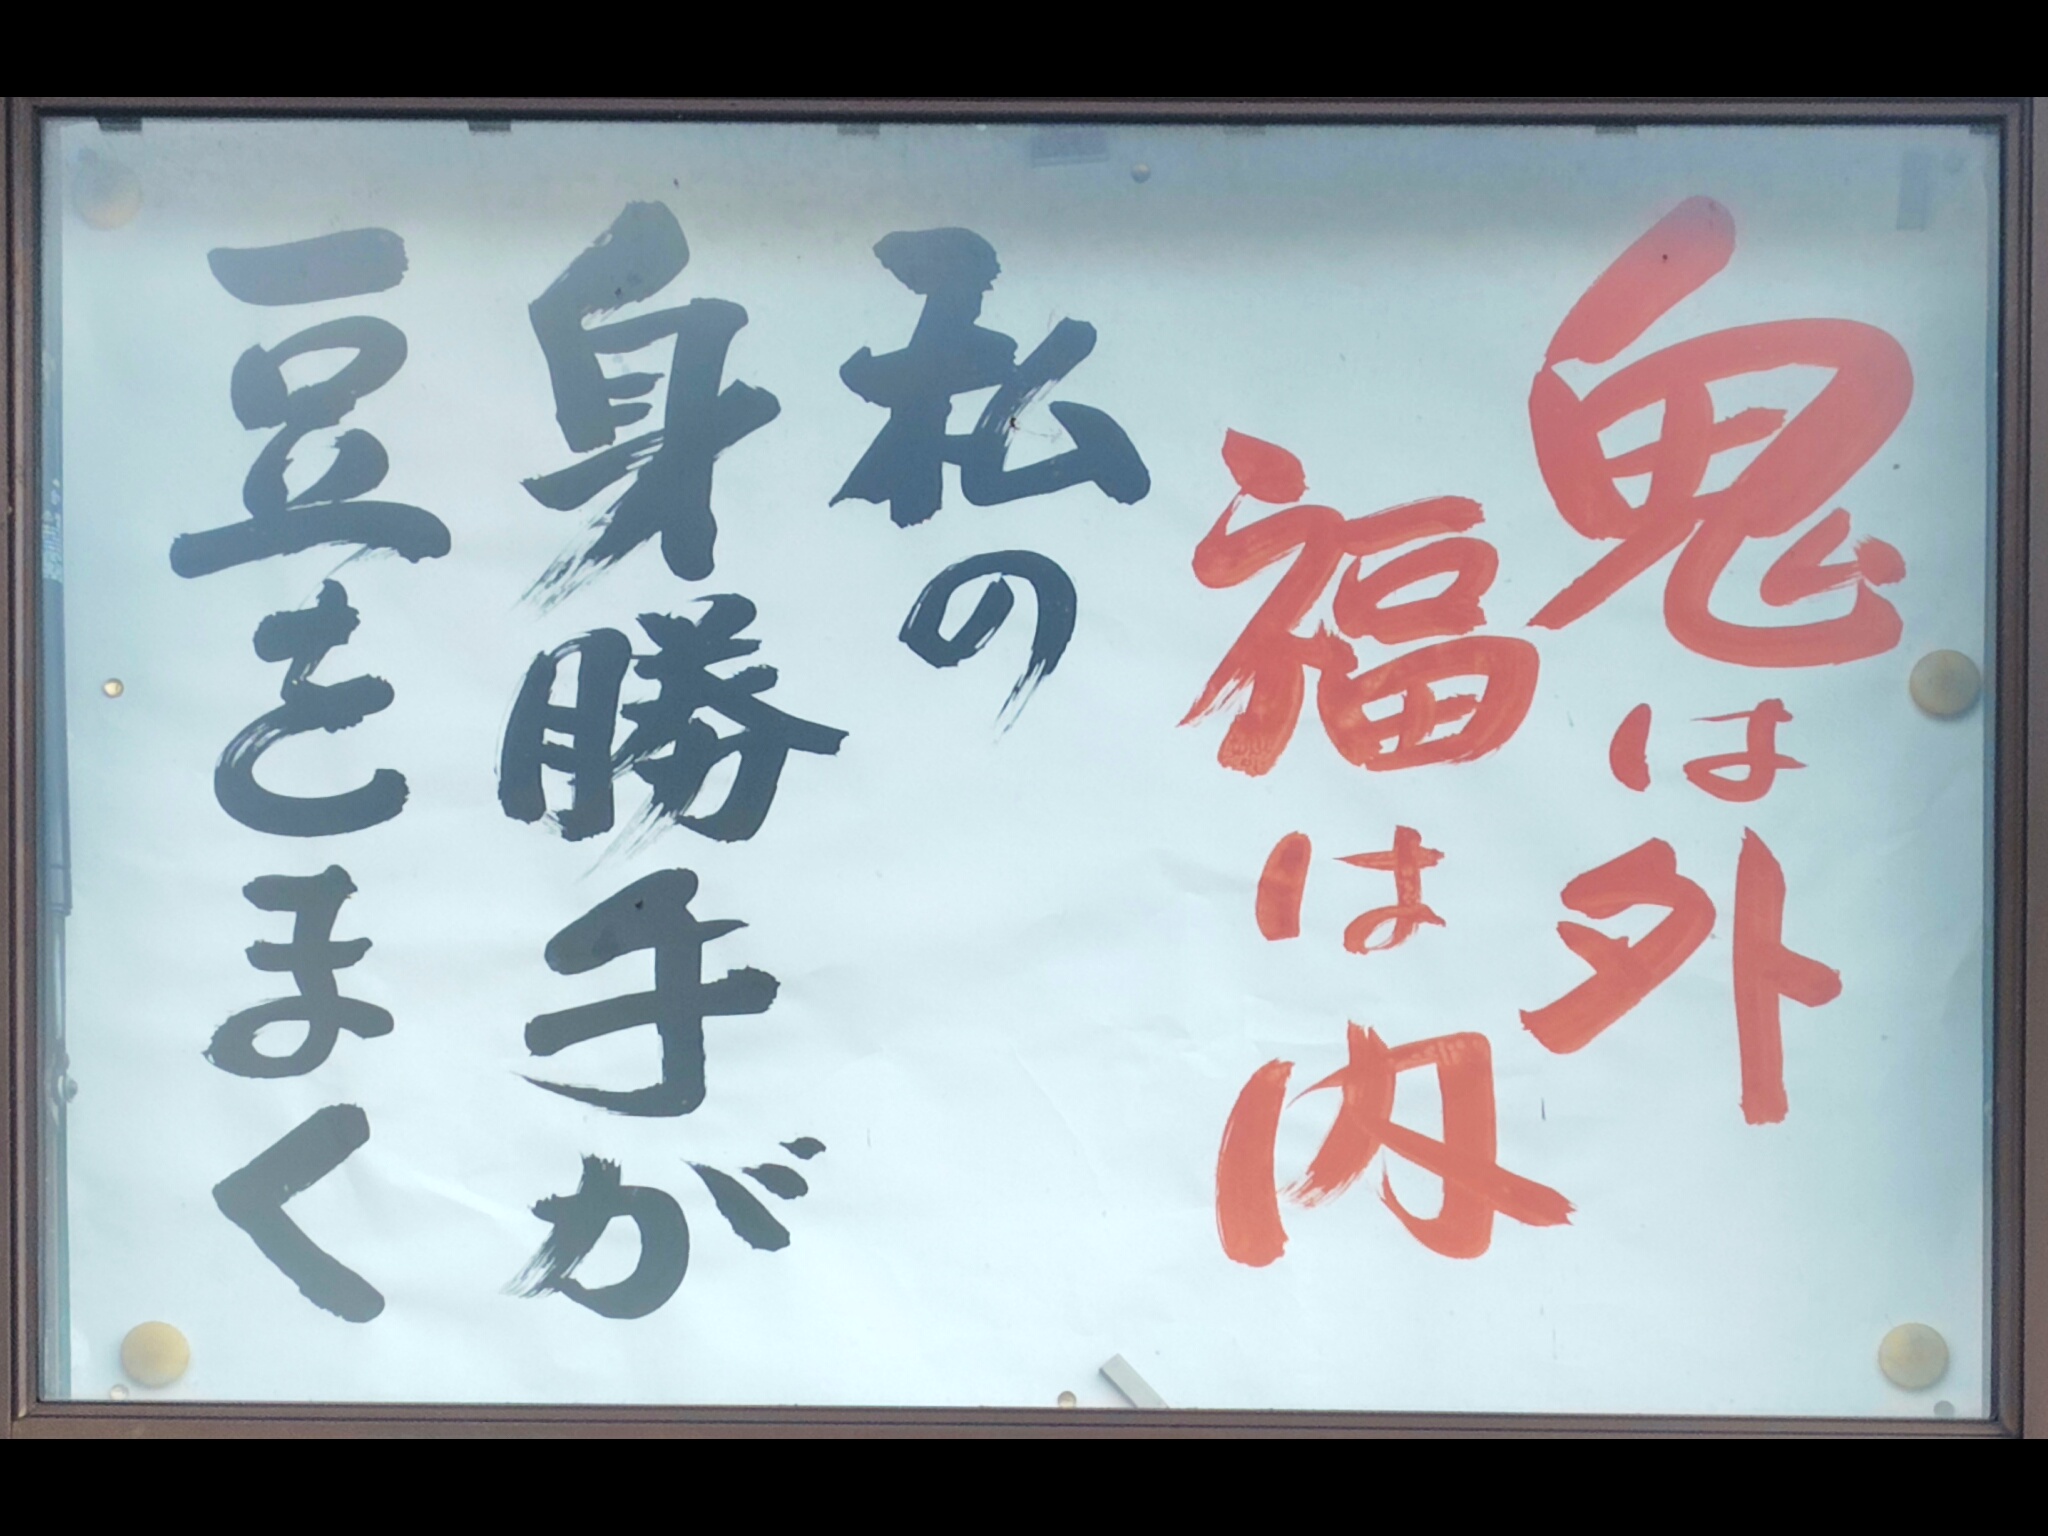 鬼は外
福は内
私の
身勝手が
豆をまく